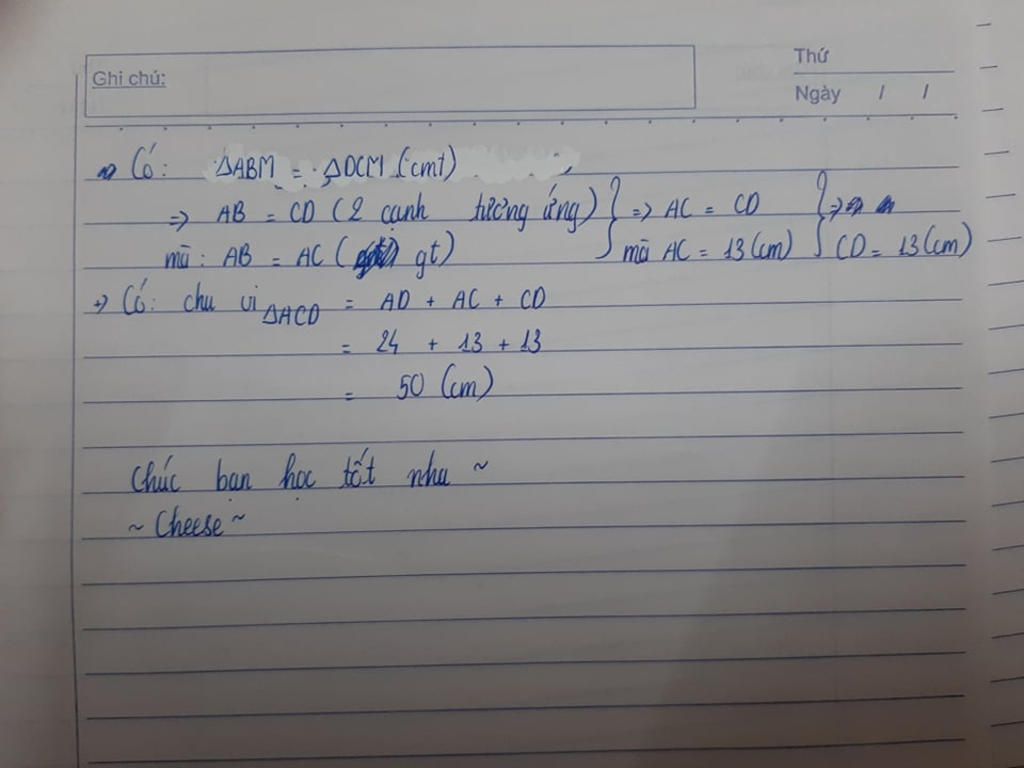 Ghi chú:
Thứ
Ngày / /
=> Có: ΔABM = ΔDCM (cmt)
=> AB = CD (2 cạnh tương ứng) } => AC = CD } =>
mà: AB = AC ( gt) } mà AC = 13 (cm) } CD = 13 (cm)
=> Có: chu vi ΔACD = AD + AC + CD
= 24 + 13 + 13
= 50 (cm)
Chúc bạn học tốt nha ~
~ Cheese ~